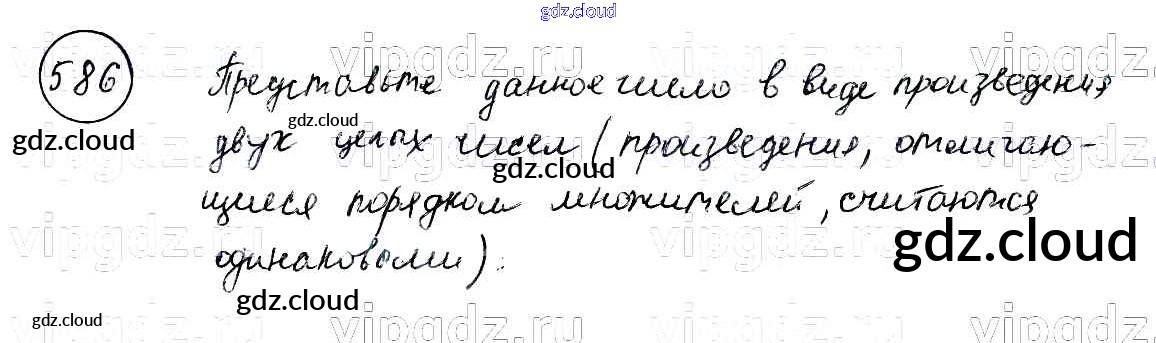 gdz.cloud
vipgdz.ru vipgdz.ru vipgdz.ru vipgdz.ru
586 Представьте данное число в виде произведения
gdz.cloud
gdz.cloud
двух целых чисел (произведения, отличаю-
vipgdz.ru vipgdz.ru vipgdz.ru vipgdz.ru
gdz.cloud
щиеся порядком множителей, считаются
gdz.cloud
vipgdz.ru vipgdz.ru vipgdz.ru vipgdz.ru
одинаковыми).
gdz.cloud
gdz.cloud
vipgdz.ru vipgdz.ru vipgdz.ru vipgdz.ru